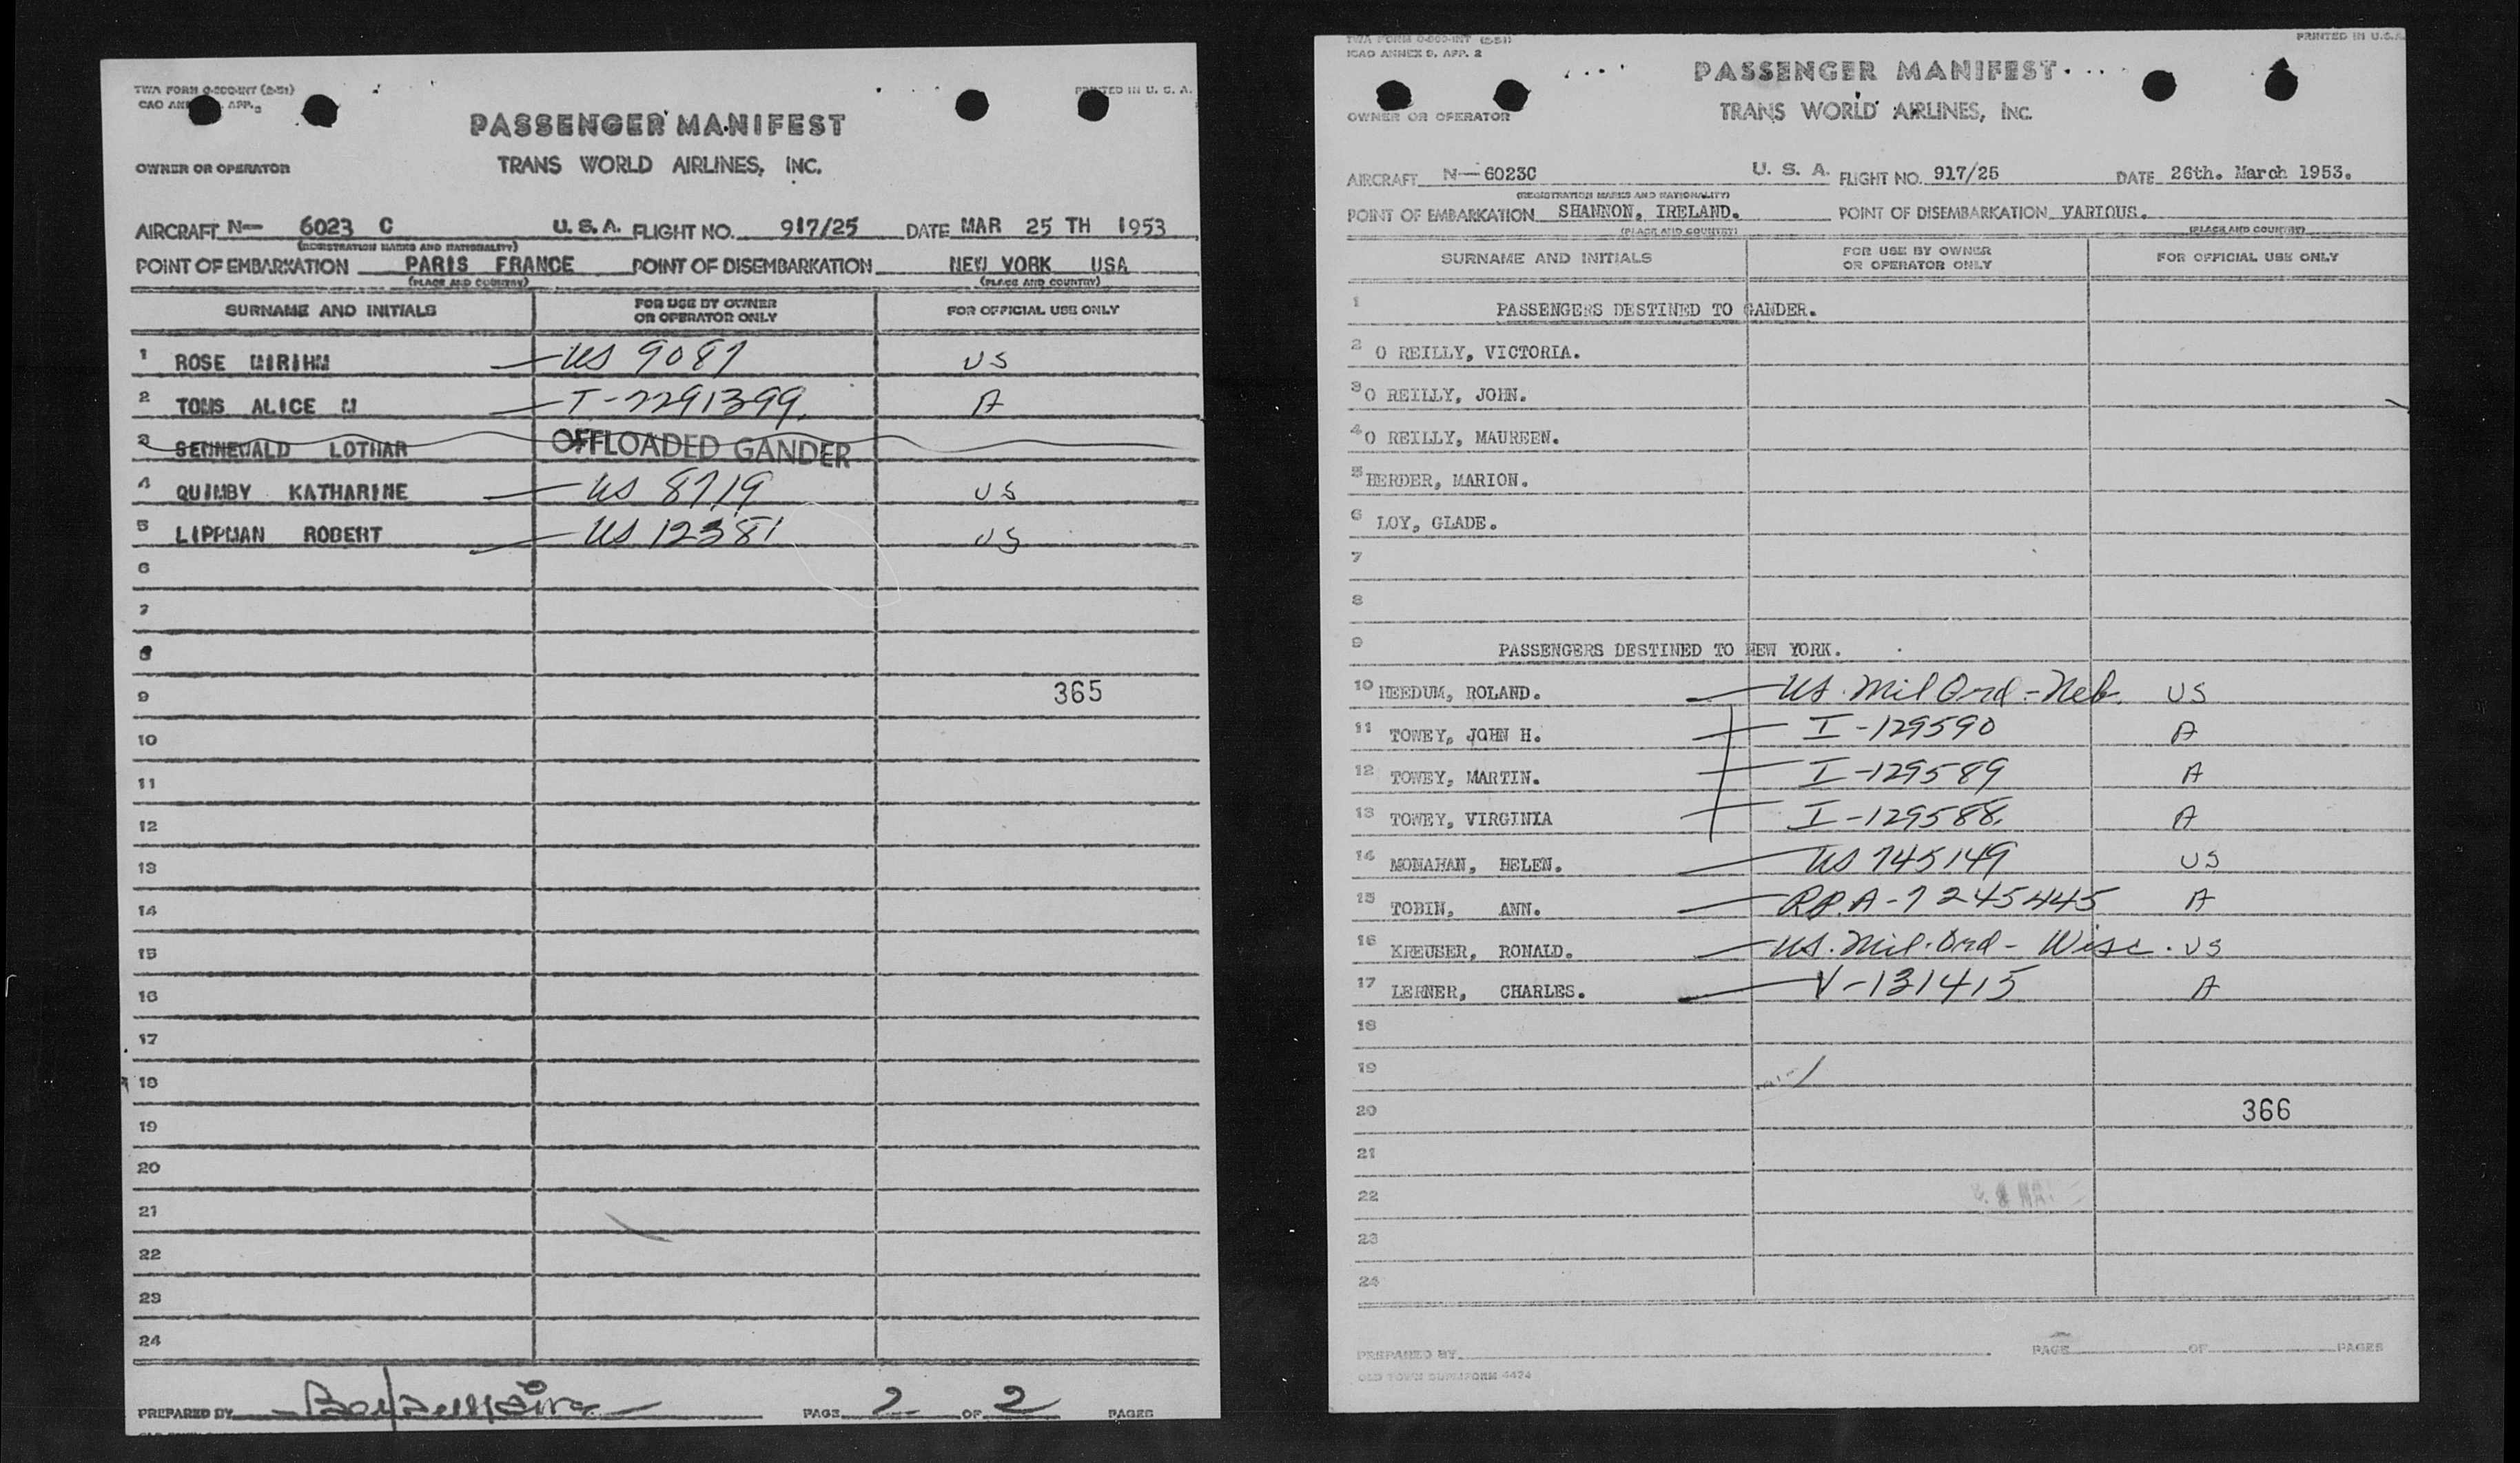 TWA FORM O-200-INT (2-51)
PRINTED IN U. S. A.
PASSENGER MANIFEST
OWNER OR OPERATOR
TRANS WORLD AIRLINES, INC.
AIRCRAFT N— 6023 C U. S. A. FLIGHT NO. 917/25 DATE MAR 25 TH 1953
(REGISTRATION MARKS AND NATIONALITY)
POINT OF EMBARKATION PARIS FRANCE POINT OF DISEMBARKATION NEW YORK USA
(PLACE AND COUNTRY) (PLACE AND COUNTRY)
SURNAME AND INITIALS FOR USE BY OWNER OR OPERATOR ONLY FOR OFFICIAL USE ONLY
1 ROSE MIRIHM — US 9087 US
2 TOMS ALICE M — T-7291399 A
3 SENNEWALD LOTHAR OFFLOADED GANDER
4 QUIMBY KATHARINE — US 8719 US
5 LIPPMAN ROBERT — US 12381 US
6
7
8
9 365
10
11
12
13
14
15
16
17
18
19
20
21
22
23
24
PREPARED BY PAGE 2 OF 2 PAGES
TWA FORM O-200-INT (2-51)
PRINTED IN U.S.A.
ICAO ANNEX 9, APP. 2
PASSENGER MANIFEST
OWNER OR OPERATOR
TRANS WORLD AIRLINES, INC.
AIRCRAFT N—6023C U. S. A. FLIGHT NO. 917/25 DATE 26th. March 1953.
(REGISTRATION MARKS AND NATIONALITY)
POINT OF EMBARKATION SHANNON, IRELAND. POINT OF DISEMBARKATION VARIOUS.
(PLACE AND COUNTRY) (PLACE AND COUNTRY)
SURNAME AND INITIALS FOR USE BY OWNER OR OPERATOR ONLY FOR OFFICIAL USE ONLY
1 PASSENGERS DESTINED TO GANDER.
2 O REILLY, VICTORIA.
3 O REILLY, JOHN.
4 O REILLY, MAUREEN.
5 HERDER, MARION.
6 LOY, GLADE.
7
8
9 PASSENGERS DESTINED TO NEW YORK.
10 HEEDUM, ROLAND. — US. Mil Ord - Neb. US
11 TOWEY, JOHN H. — I-129590 A
12 TOWEY, MARTIN. — I-129589 A
13 TOWEY, VIRGINIA — I-129588. A
14 MONAHAN, HELEN. — US 745149 US
15 TOBIN, ANN. — RP. A-7245445 A
16 KREUSER, RONALD. — US. Mil. Ord - Wisc. US
17 LERNER, CHARLES. — V-131415 A
18
19
20 366
21
22
23
24
PREPARED BY PAGE OF PAGES
OLD TOWN DUPLIFORM 4474